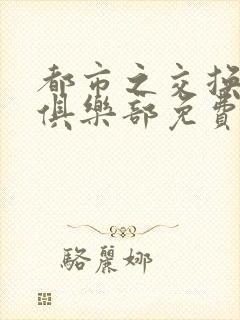 都市之交換
俱樂部免費
駱麗娜